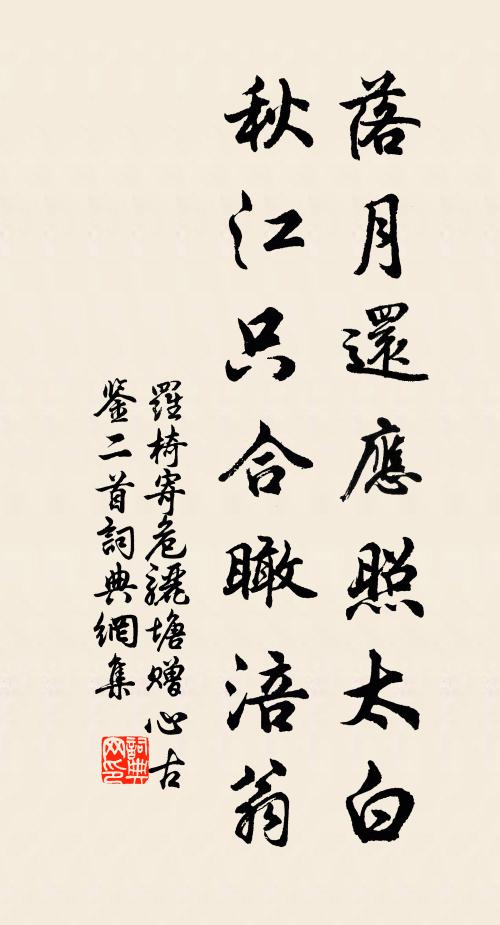 落月還應照太白
秋江只合瞰涪翁
羅椅寄危驪塘贈心古
鉴二首詞典網集
詞典网印